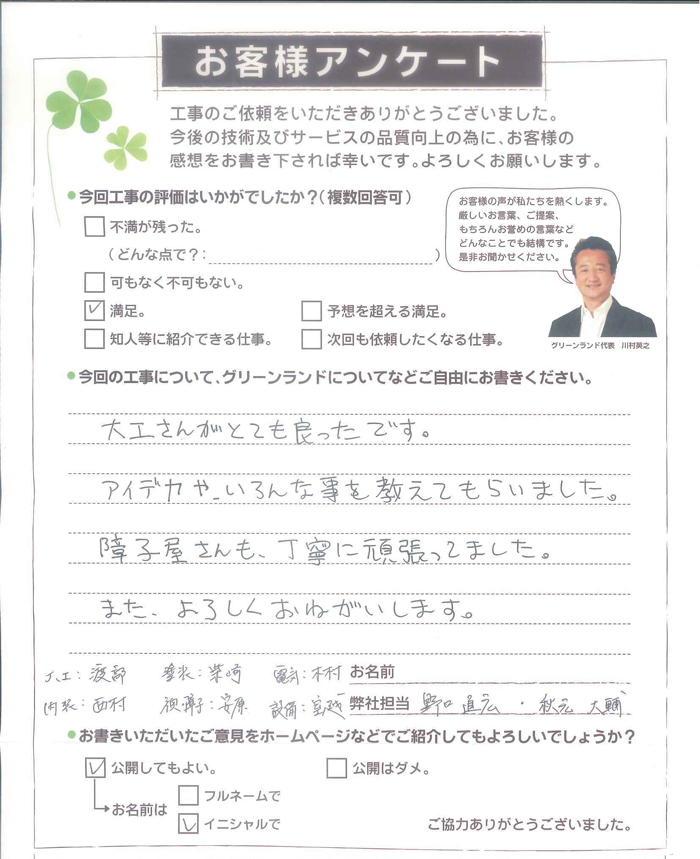 お客様アンケート
工事のご依頼をいただきありがとうございました。
今後の技術及びサービスの品質向上の為に、お客様の
感想をお書き下されば幸いです。よろしくお願いします。
今回工事の評価はいかがでしたか?(複数回答可)
不満が残った。
(どんな点で?: )
可もなく不可もない。
満足。
予想を超える満足。
知人等に紹介できる仕事。
次回も依頼したくなる仕事。
お客様の声が私たちを熱くします。
厳しいお言葉、ご提案、
もちろんお誉めの言葉など
どんなことでも結構です。
是非お聞かせください。
グリーンランド代表 川村英之
今回の工事について、グリーンランドについてなどご自由にお書きください。
大工さんがとても良ったです。
アイデアや、いろんな事を教えてもらいました。
障子屋さんも、丁寧に頑張ってました。
また、よろしくおねがいします。
渡部
柴崎
電気:木村
お名前
内装:西村
安原
設備:宮越
弊社担当 野口 直広 ・ 秋元 大輔
お書きいただいたご意見をホームページなどでご紹介してもよろしいでしょうか?
公開してもよい。
公開はダメ。
お名前は
フルネームで
イニシャルで
ご協力ありがとうございました。